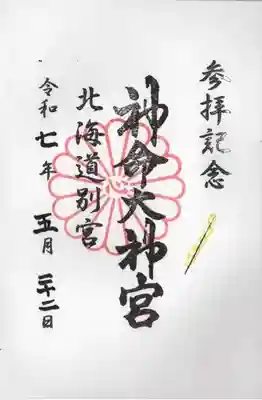 参拝記念
神命大神宮
北海道別宮
令和七年五月二十二日